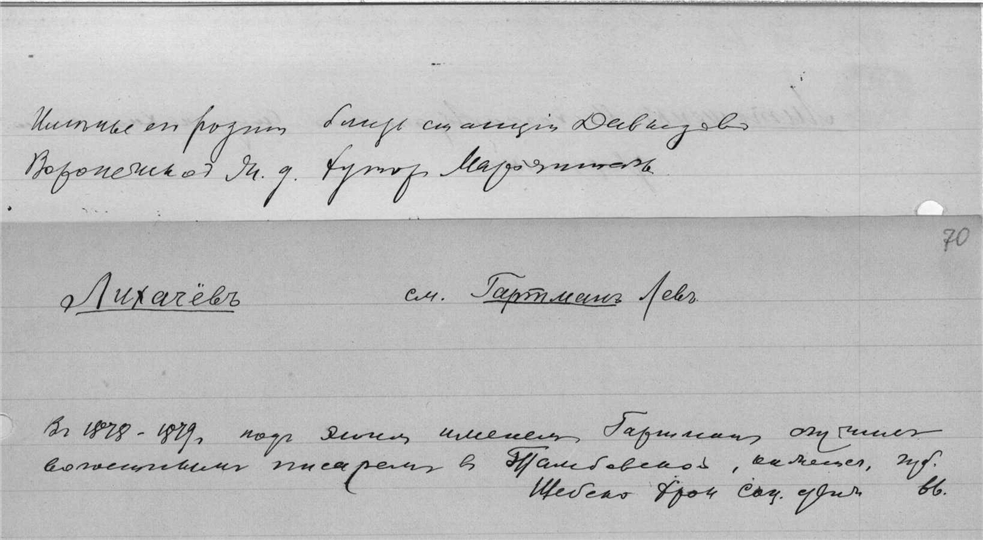 Имѣнье его родни близь станціи Давыдово
Воронежской ж. д. хутор
70
Лихачёвъ см. Гартманъ Левъ
В 1878-1879г подъ этимъ именемъ Гартманъ служилъ
волостнымъ писаремъ в Тамбовской, кажется, губ.
Шебеко Хрон соц. движ